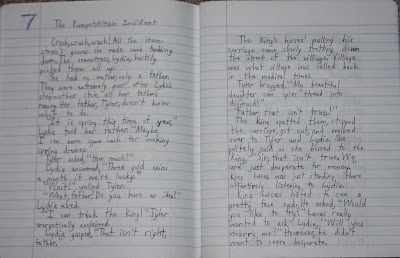 7
The Rumpelstiltskin Incident
Crash, crash, crash! All the seam-
stress's gowns she made came tumbling
down. The seamstress, Lydia, hastily
picked them all up.
She had no mother, only a father.
They were extremely poor after Lydia's
stepmother stole all her father's
money. Her father, Tyler, doesn't know
what to do.
"It is spring this time of year,"
Lydia told her father. "Maybe
I can earn some cash for making
spring dresses."
Tyler asked, "How much?"
Lydia answered, "Three gold coins
a month if we're lucky."
"Wait!" yelled Tyler.
"What, father? Do you have an idea?"
Lydia asked.
"I can trick the King!" Tyler
energetically exclaimed.
Lydia gasped, "That isn't right,
father."
The King's horses' pulling his
carriage came slowly trotting down
the street of the village. Village
was what village was called back
in the medieval times.
Tyler bragged, "My beautiful
daughter can spin thread into
diamond!"
"Father, that isn't true!"
The King spotted them, stopped
the carriage, got out, and walked
over to Tyler and Lydia. She
politely said as she bowed to the
King, "Sir, that isn't true. We
are just desperate for money."
King Lucas was just standing there
attentively listening to Lydia.
King Lucas hated to see a
pretty face sad. He asked, "Would
you like to try?" Lucas really
wanted to ask Lydia, "Will you
marry me?" However, he didn't
want to seem desperate.